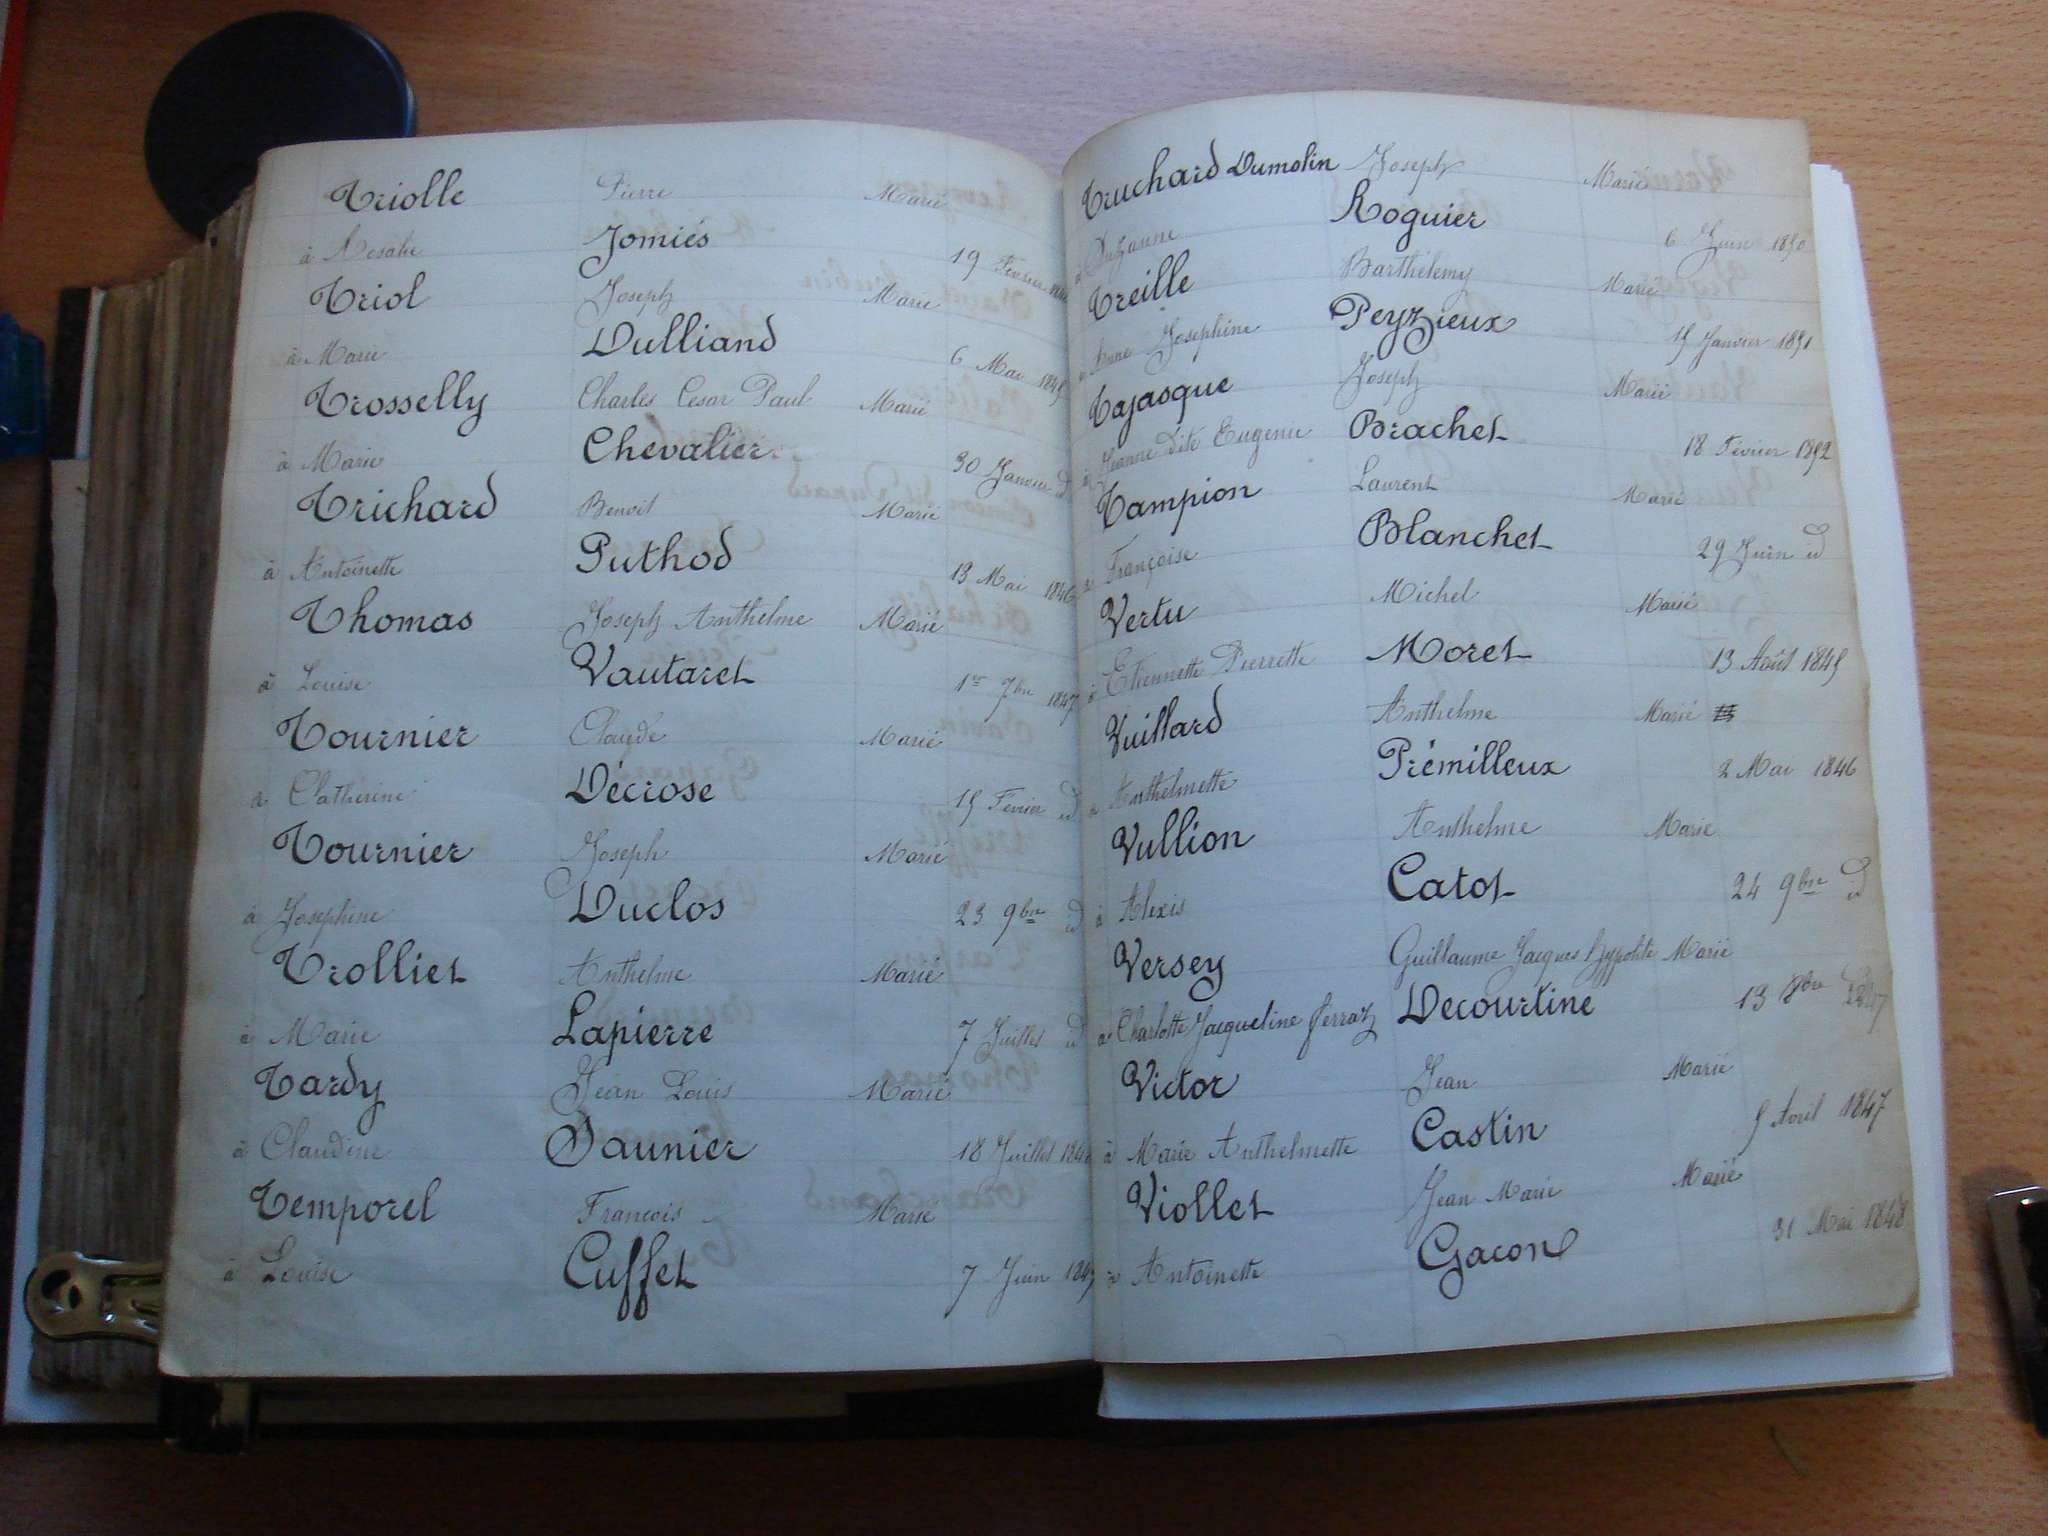 Triolle Pierre Marié
à Rosalie Jomiés 19 Fevrier
Triol Joseph Marié
à Marie Dulliand 6 Mai 1845
Trosselly Charles Cesar Paul Marié
à Marie Chevalier 30 Janvier id
Trichard Benoit Marié
à Antoinette Puthod 13 Mai 1846
Thomas Joseph Anthelme Marié
à Louise Vautaret 1er 7bre 1847
Tournier Claude Marié
à Clatherine Décrose 15 Fevrier id
Tournier Joseph Marié
à Josephine Duclos 23 9bre id
Trolliet Anthelme Marié
à Marie Lapierre 7 Juillet id
Tardy Jean Louis Marié
à Claudine Saunier 18 Juillet
Temporel Francois Marié
à Louise Cuffet 7 Juin
Truchard Dumolin Joseph Marié
à Suzanne Roguier 6 Juin 1850
Treille Barthélemy Marié
à Anne Josephine Peyzieux 15 Janvier 1851
Tajasque Joseph Marié
à Jeanne Dite Eugenie Brachet 18 Février 1852
Tampion Laurent Marié
à Françoise Blanchet 29 Juin id
Vertu Michel Marié
à Etiennette Pierrette Moret 13 Août 1845
Vuillard Anthelme Marié
à Anthelmette Prémilleux 2 Mai 1846
Vullion Anthelme Marié
à Alexis Catot 24 9bre id
Versey Guillaume Jacques Hyppolite Marié
à Charlotte Jacqueline Ferraz Decourtine 13
Victor Jean Marié
à Marie Anthelmette Castin 5 Avril 1847
Viollet Jean Marie Marié
à Antoinette Gacon 31 Mai 1848